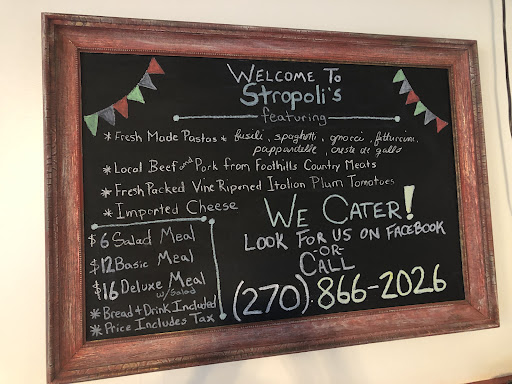 WELCOME TO
Stropoli's
featuring
* Fresh Made Pastas * fusili, spaghetti, gnocci, fettuccini,
pappardelle, creste di gallo
* Local Beef and Pork from Foothills Country Meats
* Fresh Packed Vine Ripened Italian Plum Tomatoes
* Imported Cheese
$6 Salad Meal
$12 Basic Meal
$16 Deluxe Meal
w/Salad
* Bread + Drink Included
* Price Includes Tax
WE CATER!
LOOK FOR US ON FACEBOOK
-OR-
CALL
(270).866-2026